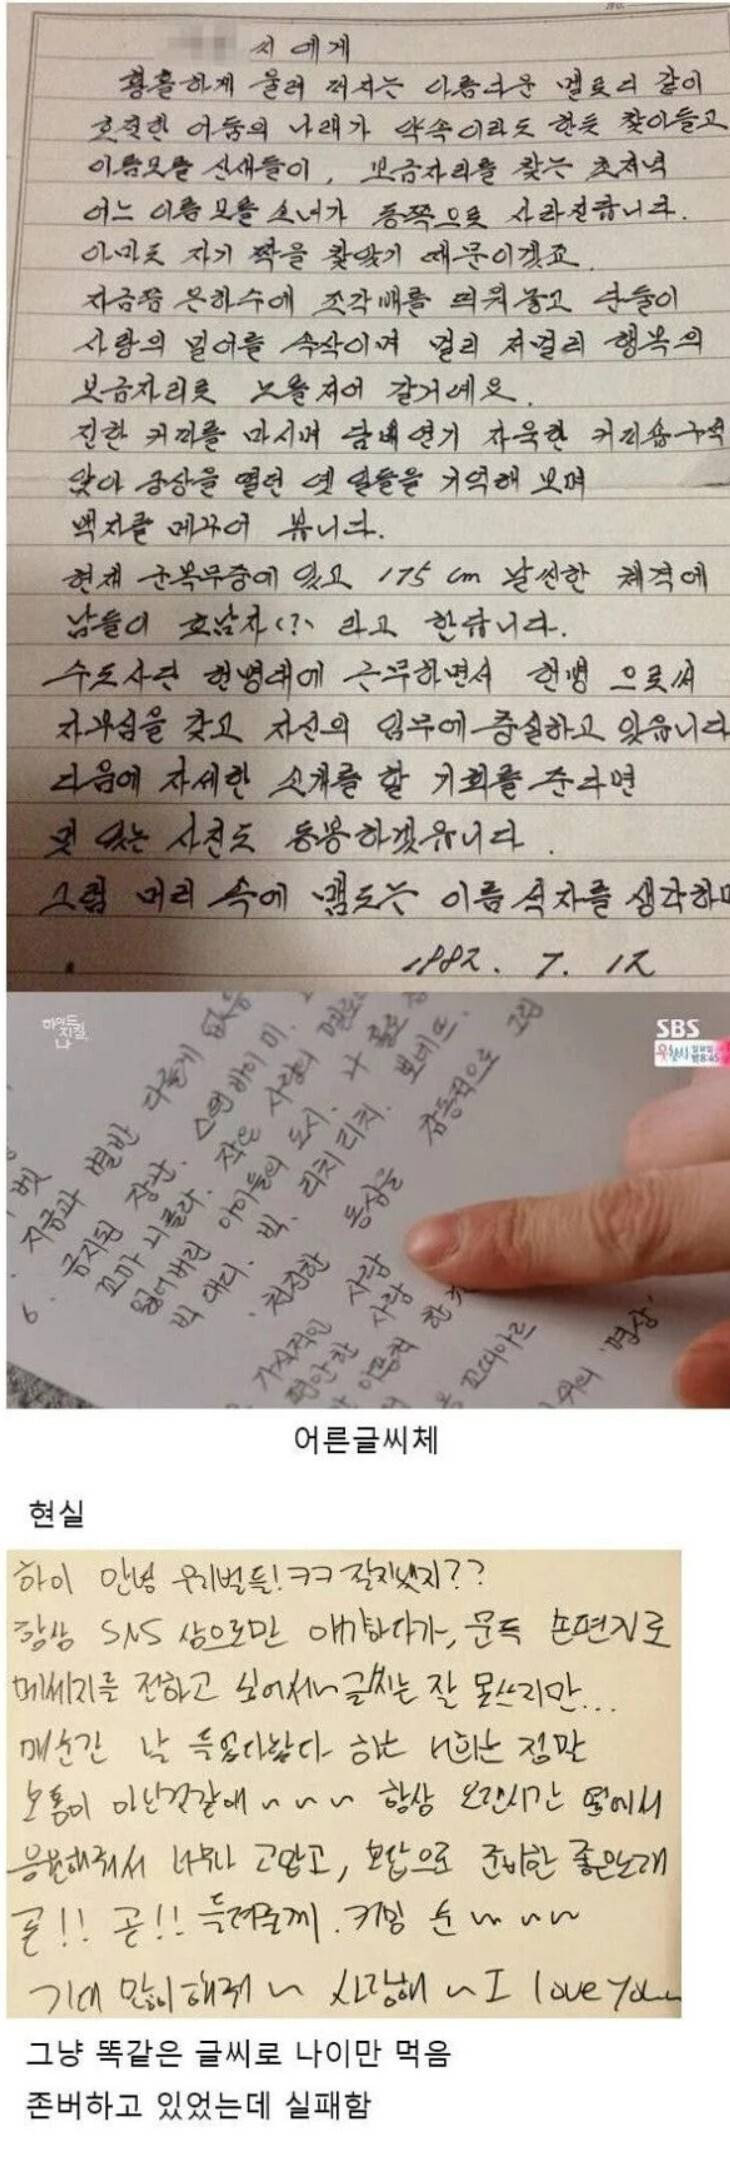 씨 에게
황홀하게 울려 퍼지는 아름다운 멜로디 같이
호젓한 어둠의 나래가 약속이라도 한듯 찾아들고
이름모를 산새들이, 보금자리를 찾는 초저녁
어느 이름 모를 소녀가 동쪽으로 사라진답니다.
아마도 자기 짝을 찾았기 때문이겠죠.
지금쯤 은하수에 조각배를 띄워놓고 단둘이
사랑의 밀어를 속삭이며 멀리 저멀리 행복의
보금자리로 노를저어 갈거예요.
진한 커피를 마시며 담배연기 자욱한 커피숍구석
앉아 궁상을 떨던 옛 일들을 기억해 보며
백지를 메꾸어 봅니다.
현재 군복무중에 있고 175 cm 날씬한 체격에
남들이 호남자(?) 라고 한답니다.
수도사단 헌병대에 근무하면서 헌병 으로써
자부심을 갖고 자신의 임무에 충실하고 있읍니다
다음에 자세한 소개를 할 기회를 준다면
멋 있는 사진도 동봉하겠읍니다.
그럼 머리 속에 맴도는 이름 석자를 생각하며
1982. 7. 12
하이드
지킬,
나
SBS
벳
지금과 별반 다를게 없음
6. 금지된 장난. 스윗 바이 미.
꼬마 니콜라. 작은 사랑의 멜로
잃어버린 아이들의 도시. 나 홀로
빅 대디. 빅. 리치리치. 보네뜨.
'천진한 동심을 감동적으로 그린
가식적인 사람
편안한 사람
꼬떼아르
위의 '명상'
어른글씨체
현실
하이 안녕 우리벌들!ㅋㅋ 잘지냈지??
항상 SNS 상으로만 얘기하다가, 문득 손편지로
메세지를 전하고 싶어서~글씨는 잘 못쓰지만...
매순간 날 들었다놨다 하는 너희는 정말
보통이 아닌것같애~~~ 항상 오랜시간 옆에서
응원해줘서 너무나 고맙고, 보답으로 준비한 좋은노래
곧!! 곧!! 들려줄께. 커밍 순~~~
기대 많이해줘~ 사랑해~I love you~
그냥 똑같은 글씨로 나이만 먹음
존버하고 있었는데 실패함